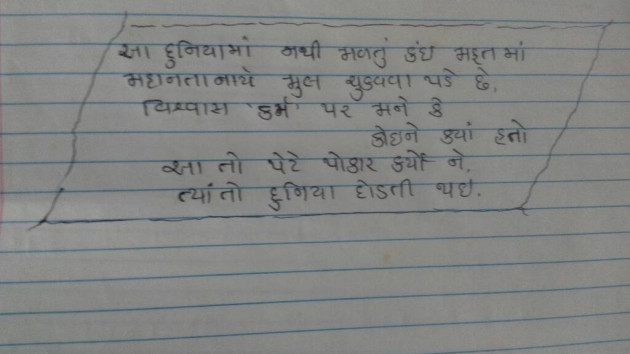 આ દુનિયામાં નથી મળતું કંઇ મફ્તમાં
મહાનતાનાયે મુલ ચુકવવા પડે છે,
વિશ્વાસ 'કર્મ' પર મને કે
કોઇને ક્યાં હતો
આ તો પેટે પોકાર કર્યો ને.
ત્યાંતો દુનિયા દોડતી થઇ.